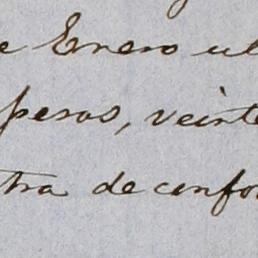 e Enero ul
pesos, veinte
tra de confo